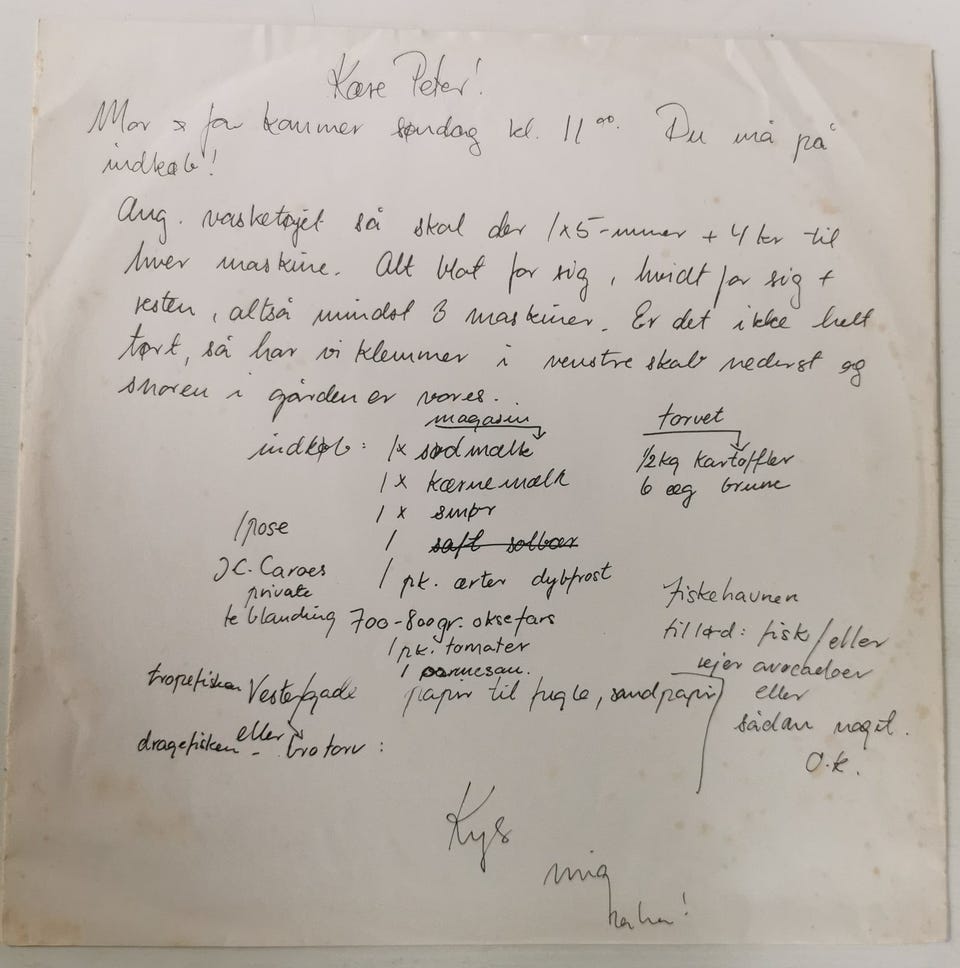 Kære Peter!
Mor & far kommer søndag kl. 11⁰⁰. Du må på
indkøb!
Ang. vasketøjet så skal der 1x5-mmer + 4 kr til
hver maskine. Alt blåt for sig, hvidt for sig +
resten, altså mindst 3 maskiner. Er det ikke helt
tørt, så har vi klemmer i venstre skab nederst og
snoren i gården er vores.
magasin
indkøb: 1x sødmælk
1 x kærnemælk
1 x smør
1 saft solbær
1 pk. ærter dybfrost
700-800gr. oksefars
1 pk. tomater
1 parmesan.
papir til fugle, sandpapir
torvet
1/2kg kartoffler
6 æg brune
1 pose
J.C. Caroes
private
te blanding
fiskehavnen
til lørd: fisk/eller
rejer avocadoer
eller
sådan noget.
O.k.
tropefisken Vestergade
eller
dragefisken - Brotorv :
Kys
mig
haha!